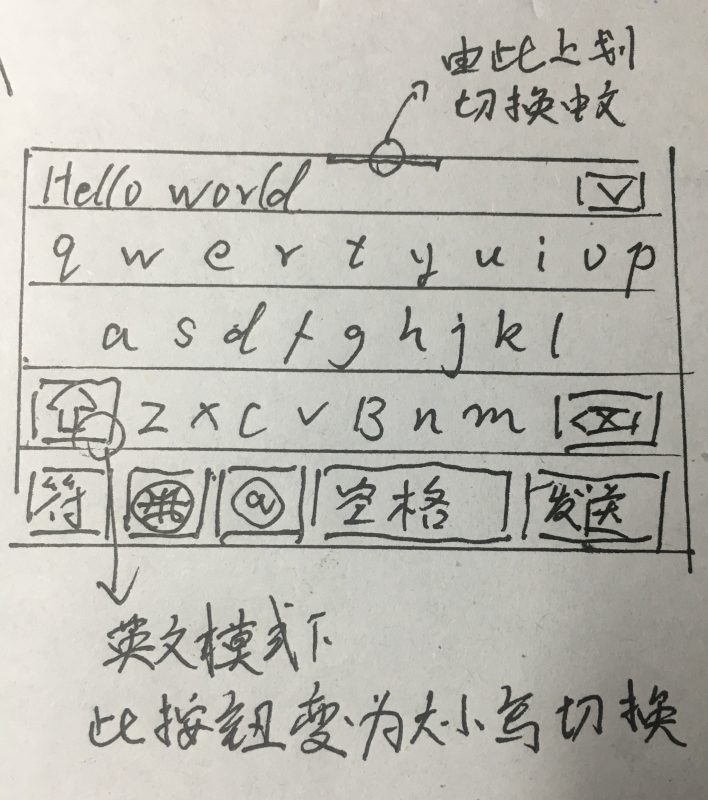 由此上划
切换中文
Hello world
q w e r t y u i o p
a s d f g h j k l
z x c v B n m
符 @ 空格 发送
英文模式下
此按钮变为大小写切换